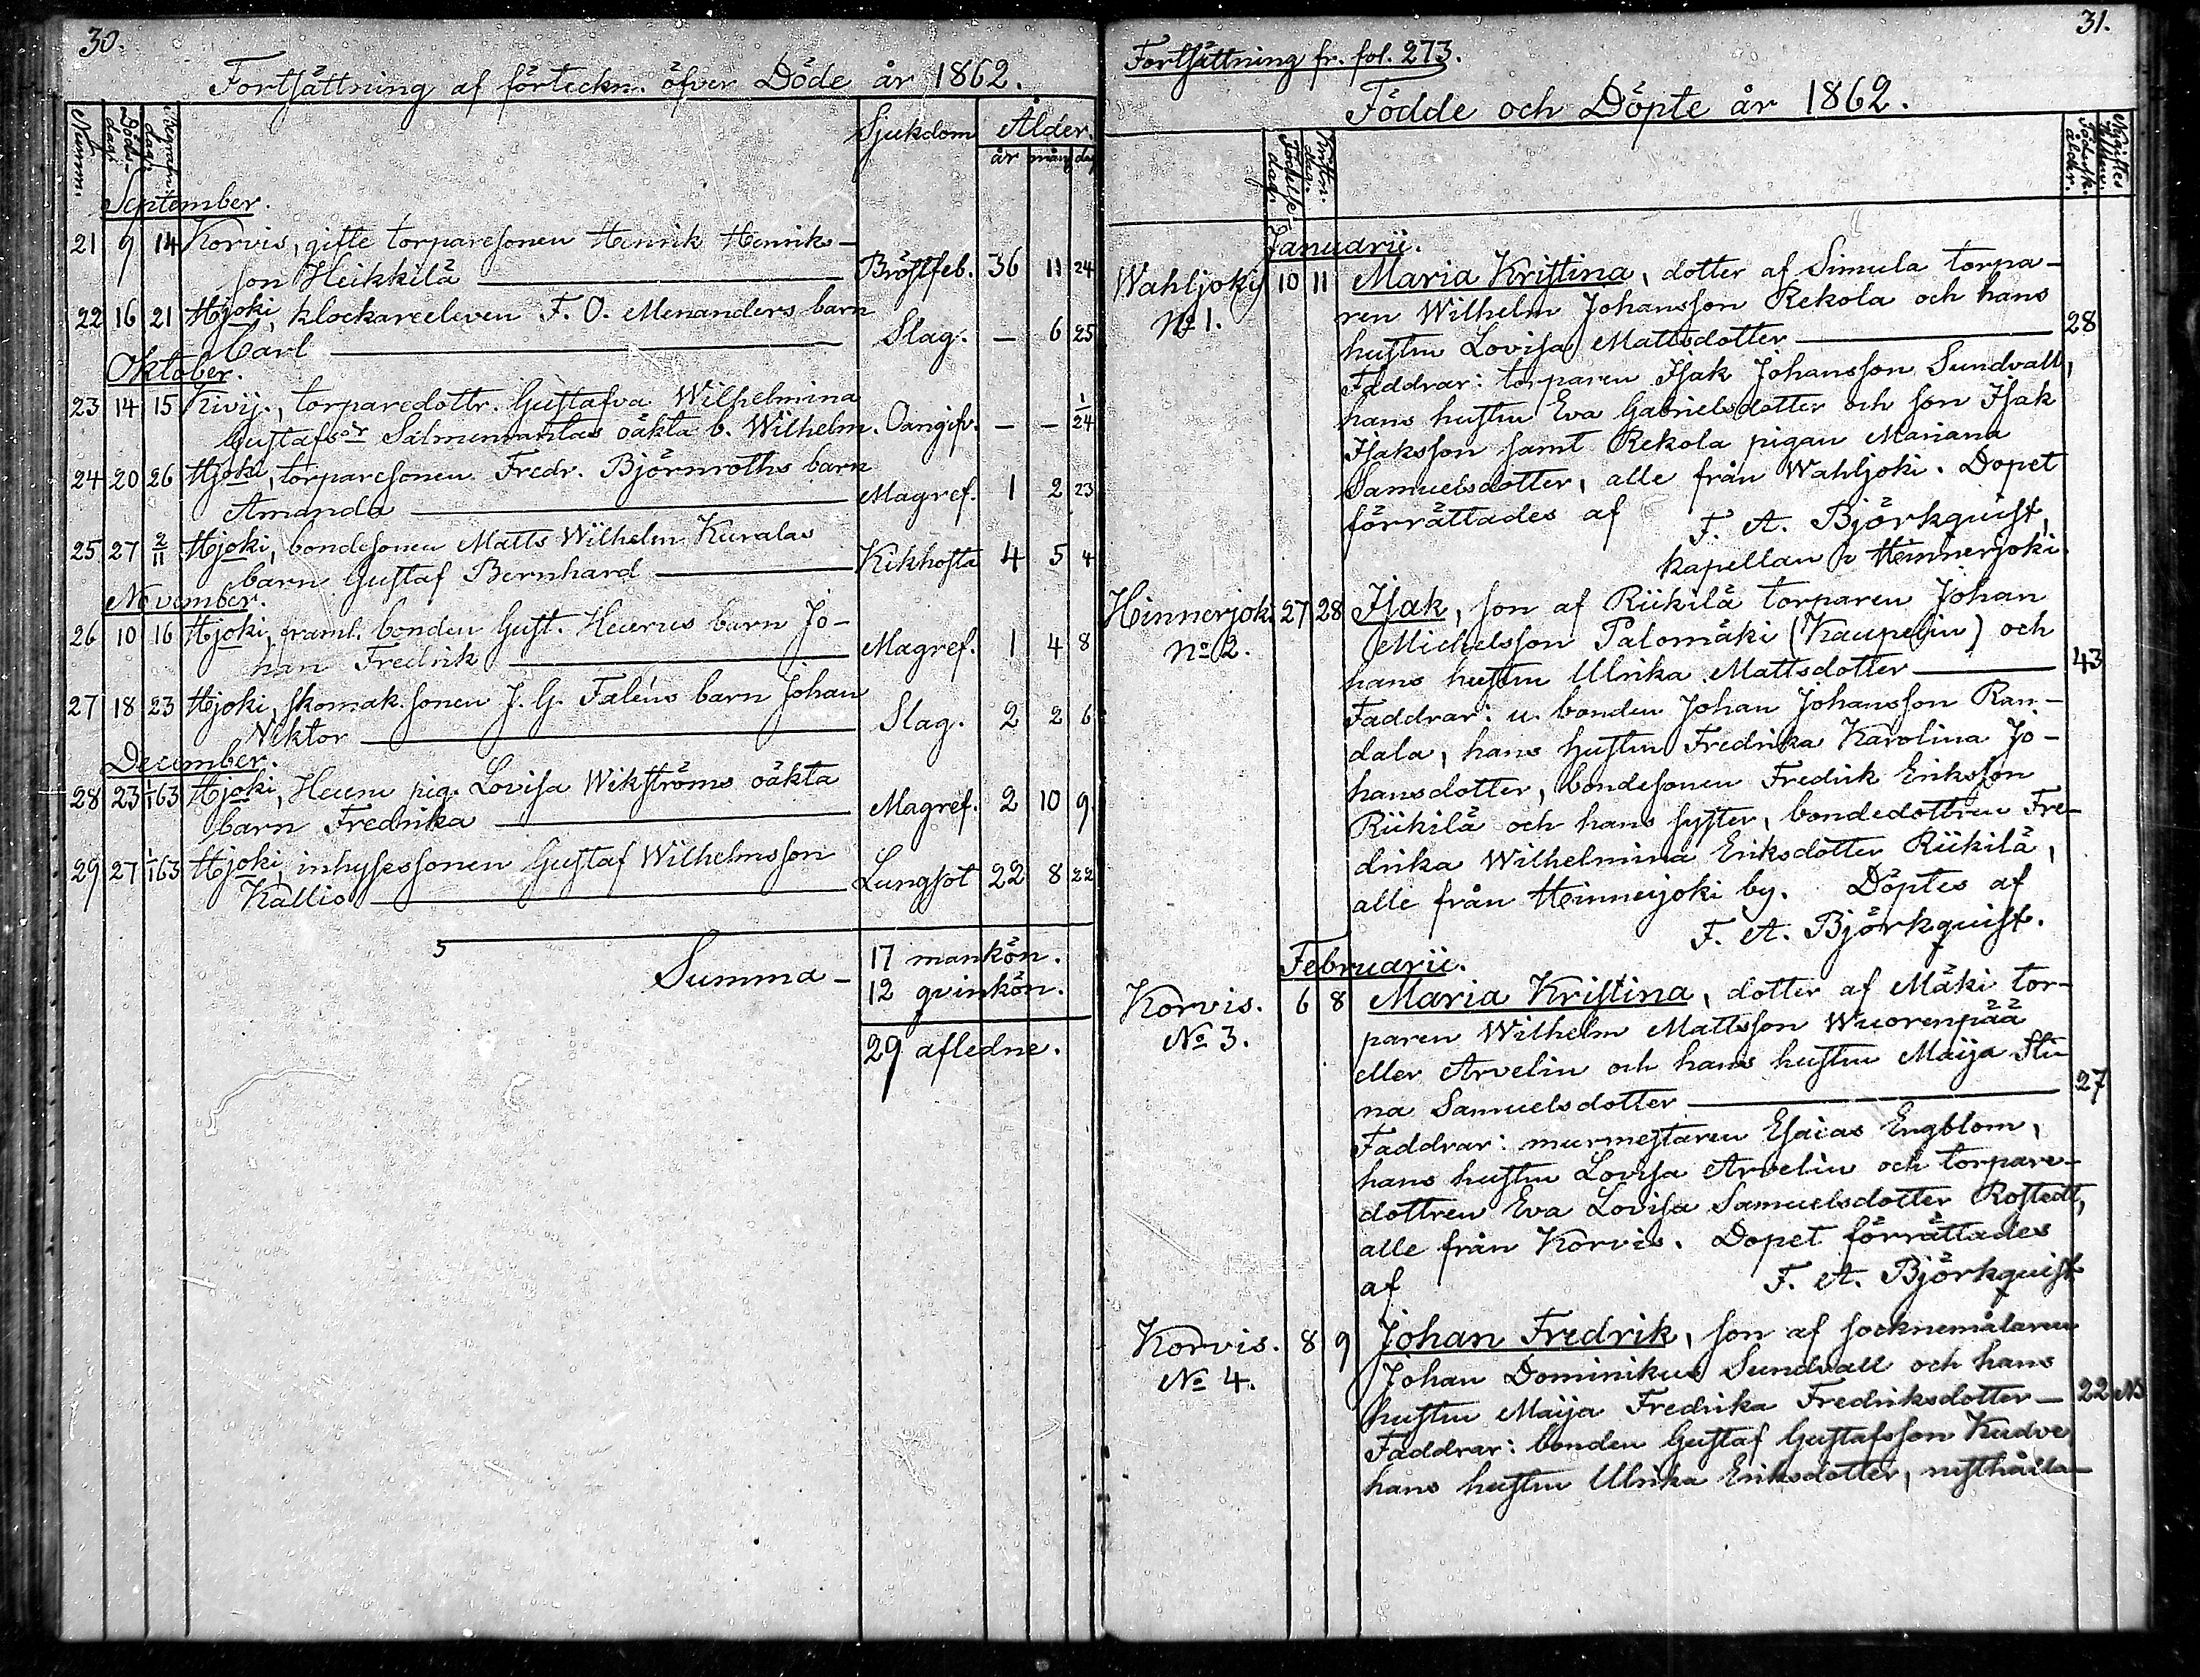 30.
Fortsättning af förteckn. öfver Döde år 1862.
Numm. Döds-dag. Begrafn. dag. Sjukdom Ålder.
år mån dag
September.
21 9 14 Korvis, gifte torparesonen Henrik Henriks-
son Heikkilä Bröstfeb. 36 11 24
22 16 21 Hjoki, klockareeleven F. O. Menanders barn
Carl Slag. — 6 25
Oktober.
23 14 15 Kivij., torparedottr. Gustafva Wilhelmina
Gustafsdr Salmenmantas oäkta b. Wilhelm. Oangifv. — — 1/24
24 20 26 Hjoki, torparesonen Fredr. Björnroths barn
Amanda Magref. 1 2 23
25 27 2/11 Hjoki, bondesonen Matts Wilhelm Kuralas
barn Gustaf Bernhard Kikhosta 4 5 4
November.
26 10 16 Hjoki, framl. bonden Gust. Heurus barn Jo-
han Fredrik Magref. 1 4 8
27 18 23 Hjoki, skomak.sonen J. G. Faléns barn Johan
Viktor Slag. 2 2 6
December.
28 23 1/1 63 Hjoki, Heuru pig. Lovisa Wikströms oäkta
barn Fredrika Magref. 2 10 9
29 27 1/1 63 Hjoki, inhysessonen Gustaf Wilhelmsson
Kallio Lungsot 22 8 22
Summa — 17 mankön.
12 qvinkön.
29 afledne.
31.
Fortsättning fr. fol. 273.
Födde och Döpte år 1862.
Födelse dag. ålder.
Januarii.
Wahljoki 10 11 Maria Kristina, dotter af Simula torpa-
No 1. ren Wilhelm Johansson Rekola och hans
hustru Lovisa Mattsdotter 28
Faddrar: torparen Isak Johansson Sundvall,
hans hustru Eva Gabrielsdotter och son Isak
Isaksson samt Rekola pigan Mariana
Samuelsdotter, alle från Wahljoki. Dopet
förrättades af F. A. Björkquist,
kapellan i Hinnerjoki.
Hinnerjoki 27 28 Isak, son af Riikilä torparen Johan
No 2. Michelsson Palomäki (Kaupelin) och
hans hustru Ulrika Mattsdotter 43
Faddrar: u. bonden Johan Johansson Ran-
dala, hans hustru Fredrika Karolina Jo-
hansdotter, bondesonen Fredrik Eriksson
Riikilä och hans syster, bondedottren Fre-
drika Wilhelmina Eriksdotter Riikilä,
alle från Hinnerjoki by. Döptes af
F. A. Björkquist.
Februarii.
Korvis. 6 8 Maria Kristina, dotter af Mäki tor-
No 3. paren Wilhelm Mattsson Wuorenpää
eller Arvelin och hans hustru Maija Sti-
na Samuelsdotter 27
Faddrar: murmestaren Esaias Engblom,
hans hustru Lovisa Arvelin och torpare-
dottren Eva Lovisa Samuelsdotter Rostedt,
alle från Korvis. Dopet förrättades
af F. A. Björkquist
Korvis. 8 9 Johan Fredrik, son af socknemålaren
No 4. Johan Dominikus Sundvall och hans
hustru Maija Fredrika Fredriksdotter — 22
Faddrar: bonden Gustaf Gustafsson Kudve
hans hustru Ulrika Eriksdotter, rusthålla-